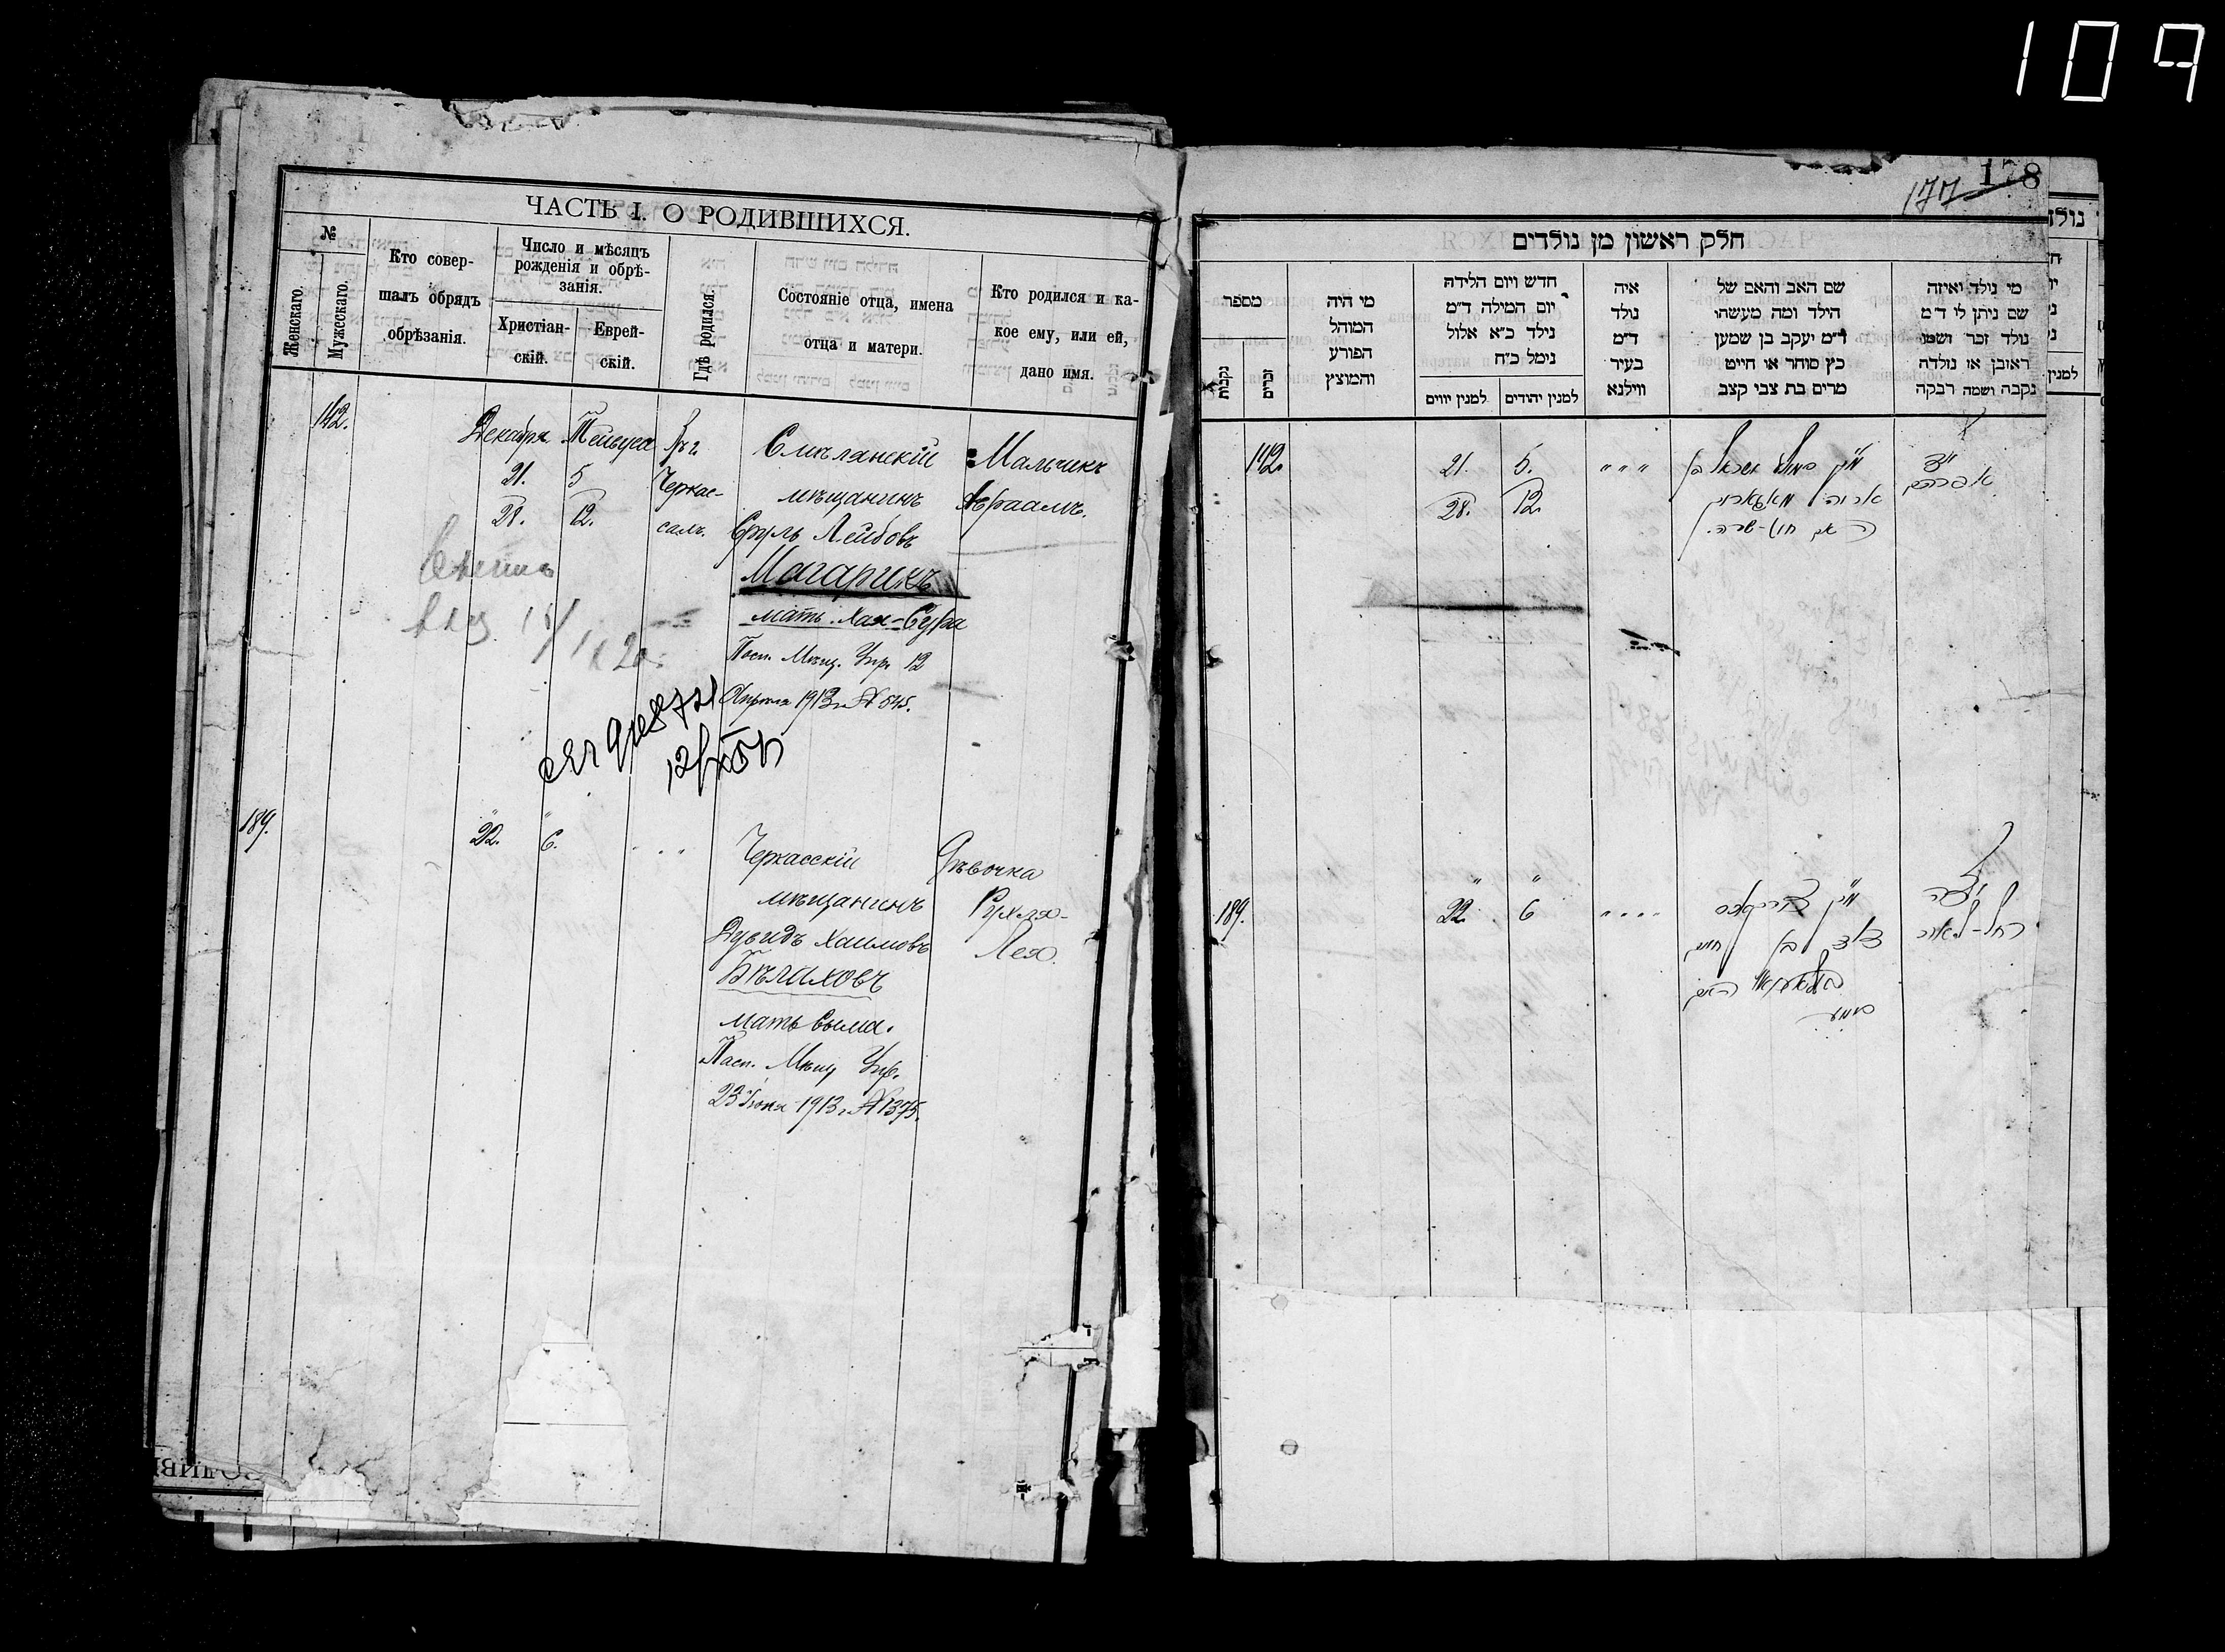 109
ЧАСТЬ I. О РОДИВШИХСЯ.
№
Женскаго.
Мужескаго.
Кто совер-
шалъ обрядъ
обрѣзанія.
Число и мѣсяцъ
рожденія и обрѣ-
занія.
Христіан-
скій.
Еврей-
скій.
Гдѣ родился.
Состояніе отца, имена
отца и матери.
Кто родился и ка-
кое ему, или ей,
дано имя.
142.
Декабря
21.
28.
Тейвуса
5
12.
Въ г.
Черкас-
сахъ.
Смѣлянскій
мѣщанинъ
Сруль Лейбовъ
Магарикъ
мать Хая-Сура
Посп. Мѣщ. Упр. 12
Апрѣля 1913 г. № 545.
Мальчикъ
Авраамъ.
189.
22.
6.
Черкасскій
мѣщанинъ
Дувидъ Хаимовъ
Бѣлаховъ
мать Сыма.
Пасп. Мѣщ Упр.
23 Іюня 1913 г. № 1375.
Дѣвочка
Рухля-
Лея.
178
177
חלק ראשון מן נולדים
מספר
נקבות
זכרים
מי היה
המוהל
הפורע
והמוצץ
חדש ויום הלידה
יום המילה ד״מ
נילד כ״א אלול
נימל כ״ח
למנין יווים
למנין יהודים
איה
נולד
ד״מ
בעיר
ווילנא
שם האב והאם של
הילד ומה מעשהו
ד״מ יעקב בן שמען
כץ סוחר או חייט
מרים בת צבי קצב
מי נולד ואיזה
שם ניתן לו ד״מ
נולד זכר ושמו
ראובן או נולדה
נקבה ושמה רבקה
142.
21.
28.
5.
12.
ילד
אברהם
189.
22.
6
ילדה
רחל-לאה
דוד בן חיים